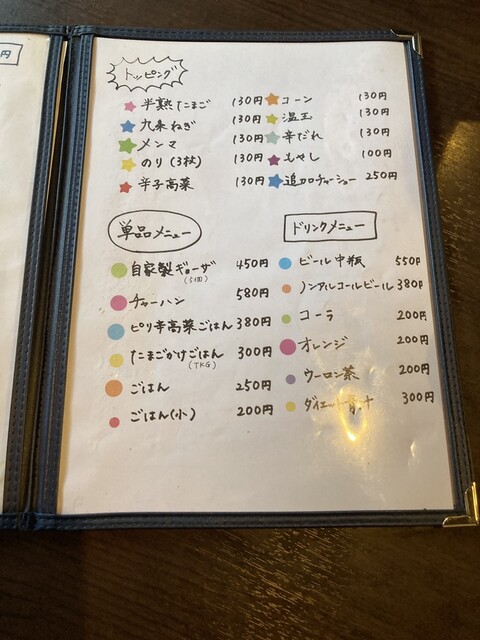 円
トッピング
半熟たまご 130円
九条ねぎ 130円
メンマ 130円
のり(3枚) 130円
辛子高菜 130円
コーン 130円
温玉 130円
辛だれ 130円
もやし 100円
追加チャーシュー 250円
単品メニュー
自家製ギョーザ 450円
(5個)
チャーハン 580円
ピリ辛高菜ごはん 380円
たまごかけごはん 300円
(TKG)
ごはん 250円
ごはん(小) 200円
ドリンクメニュー
ビール中瓶 550円
ノンアルコールビール 380円
コーラ 200円
オレンジ 200円
ウーロン茶 200円
ダイエット青汁 300円